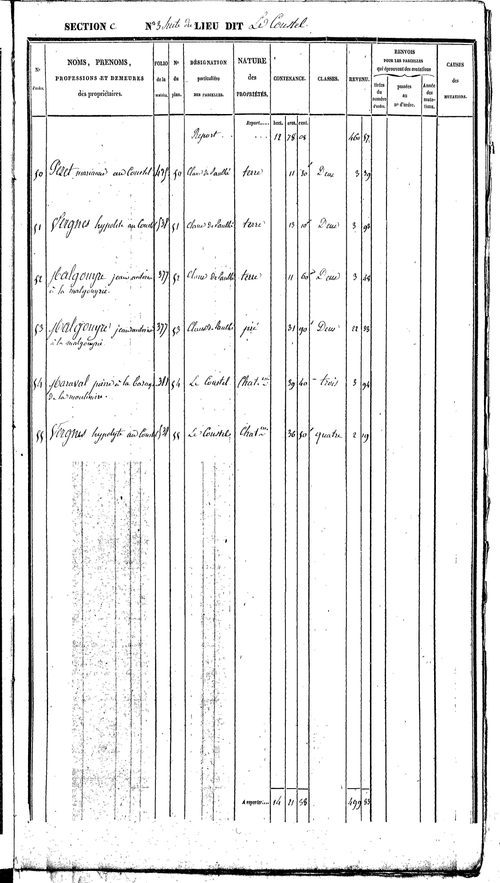 SECTION C N° 3 Suite du LIEU DIT Le Coustel
N° d'ordre. NOMS, PRENOMS, PROFESSIONS ET DEMEURES des propriétaires. FOLIO de la matrice. N° du plan. DÉSIGNATION particulière DES PARCELLES. NATURE des PROPRIÉTÉS. CONTENANCE. CLASSES. REVENU. RENVOIS POUR LES PARCELLES qui éprouvent des mutations CAUSES des MUTATIONS.
tirées du numéro d'ordre. passées au n° d'ordre. Année des mutations.
Report.... hect. aret. cent.
Report . . . . . . 12 78 08 460 87
50 Péret marianne au Coustel 475 50 terre 11 30 Deux 3 39
51 Vergnes hypolite au Coustel 538 51 terre 13 10 Deux 3 94
52 Malgouyre jean antoine 377 52 terre 11 60 Deux 3 48
à la malgouyrie.
53 Malgouyre jean antoine 377 53 pré 31 90 Deux 22 33
à la malgouyrie
54 Maraval pierre à la 381 54 Le Coustel Chat.ne 39 40 trois 3 94
de la mouliniere.
55 Vergnes hypolyte au Coustel 538 55 Le Coustel Chat.ne 36 50 quatre 2 19
A reporter.... 14 21 88 499 83